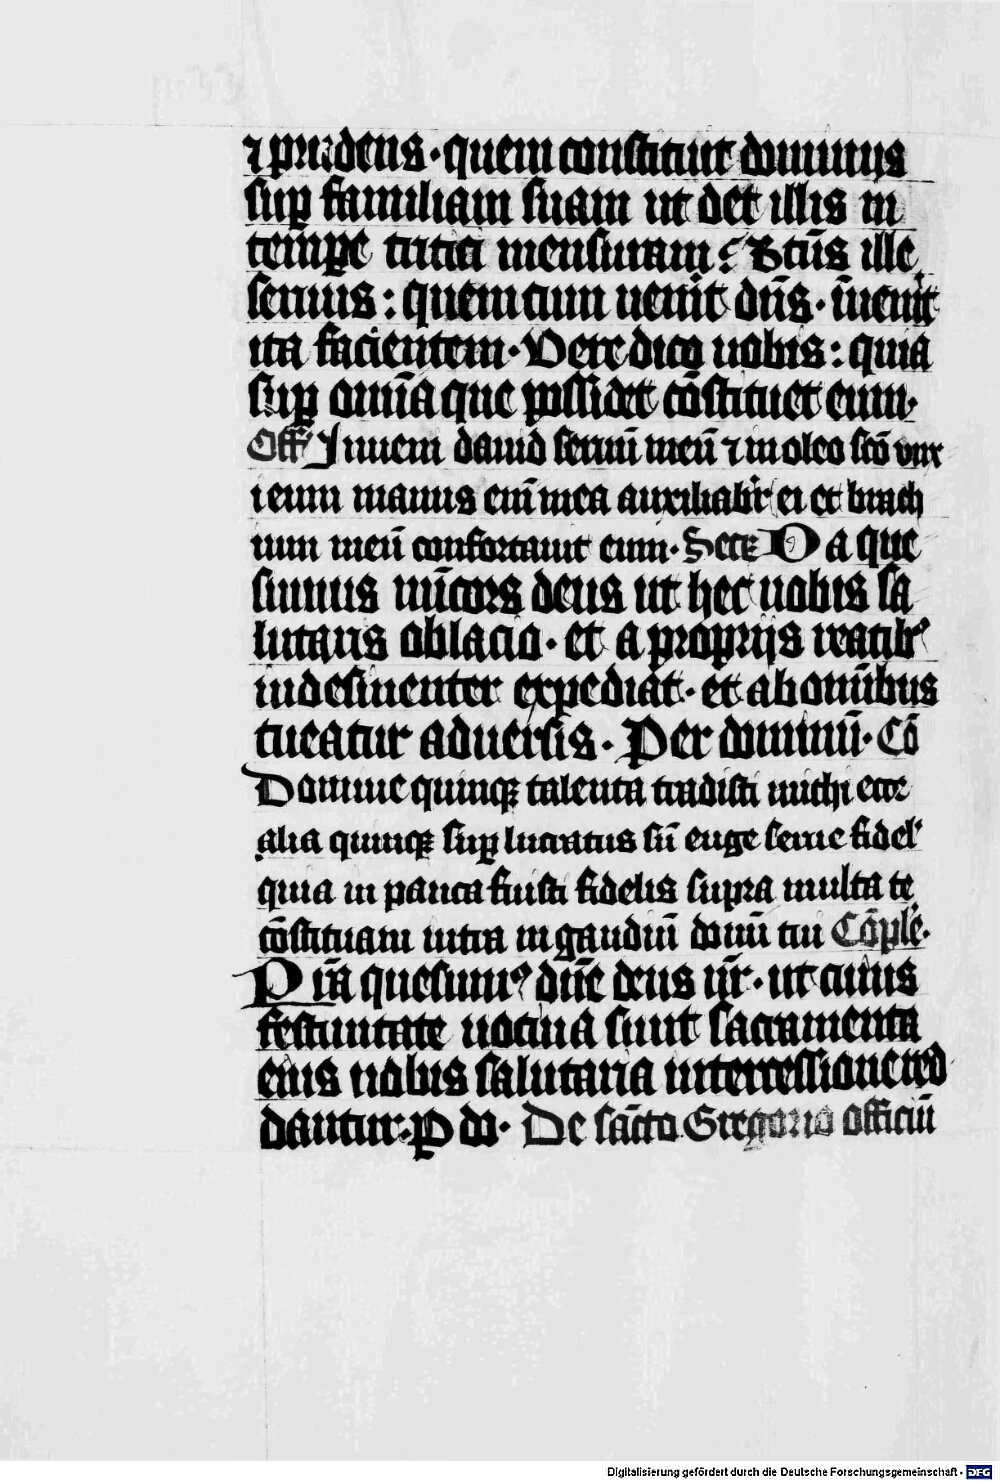 ⁊ prudens · quem constituit dominus
suꝑ familiam suam ut det illis in
temꝑe tritici mensuram? Btūs ille
seruus : quem cum uenit dn̄s · īuen̄it
ita facientem · Vere dico uobis : quia
suꝑ omīa que possidet cōstituet eum ·
Off Inueni dauid seruū meū ⁊ in oleo scō vnx
i eum manus em̄ mea auxiliabr̄ ei et brach
ium meū confortauit eum · Secr Da que
sumus mīcors deus ut hec nobis sa
lutaris oblacio · et a proprijs reatibꝰ
indesinenter expediat · et ab om̄ibus
tueatur aduersis · Per dominū · Cō
Domine quinqꝫ talenta tradisti michi ecce
alia quinqꝫ suꝑ lucratus sū euge serue fidel'
quia in pauca fuisti fidelis supra multa te
cōstituam intra in gaudiū domī tui Cōple ·
Pīa quesumꝰ dn̄e deus nr̄ · ut cuius
festiuitate uotiua sunt sacramenta
eius nobis salutaria intercessione red
dantur · P do · De sācto Gregorio officiū
Digitalisierung gefördert durch die Deutsche Forschungsgemeinschaft - DFG